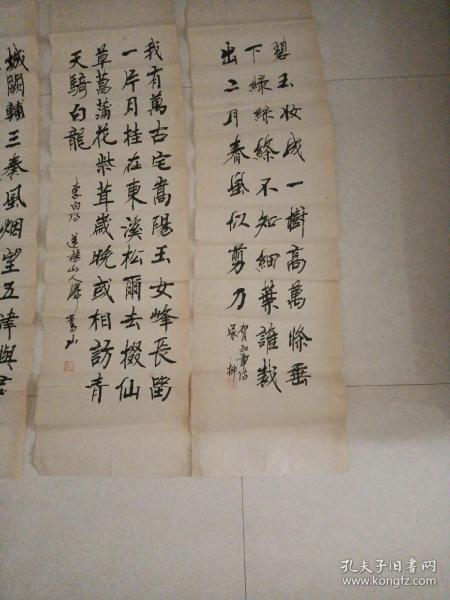 碧玉妆成一樹高萬條垂
下綠絲絛不知細葉誰裁
出二月春風似剪刀
賀知章诗
咏柳
我有萬古宅嵩陽玉女峰長留
一片月桂在東溪松爾去掇仙
草菖蒲花紫茸歲晚或相訪青
天騎白龍
李白诗 送楊山人歸嵩山
城闕輔三秦風烟望五津與君
孔夫子旧书网
www.kongfz.com